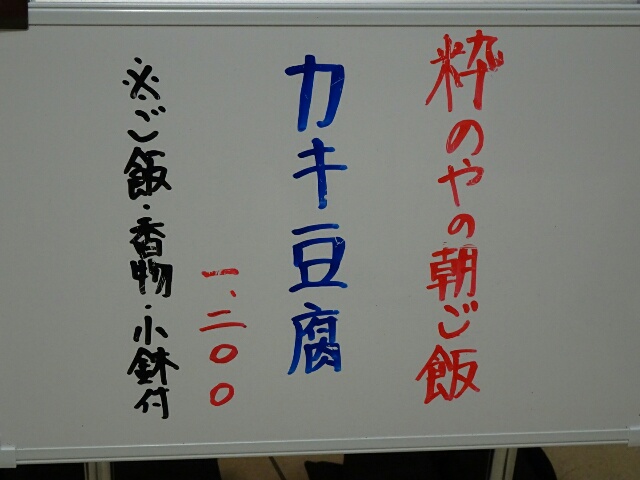 粋のやの朝ご飯
カキ豆腐
一、二〇〇
※ご飯・香物・小鉢付